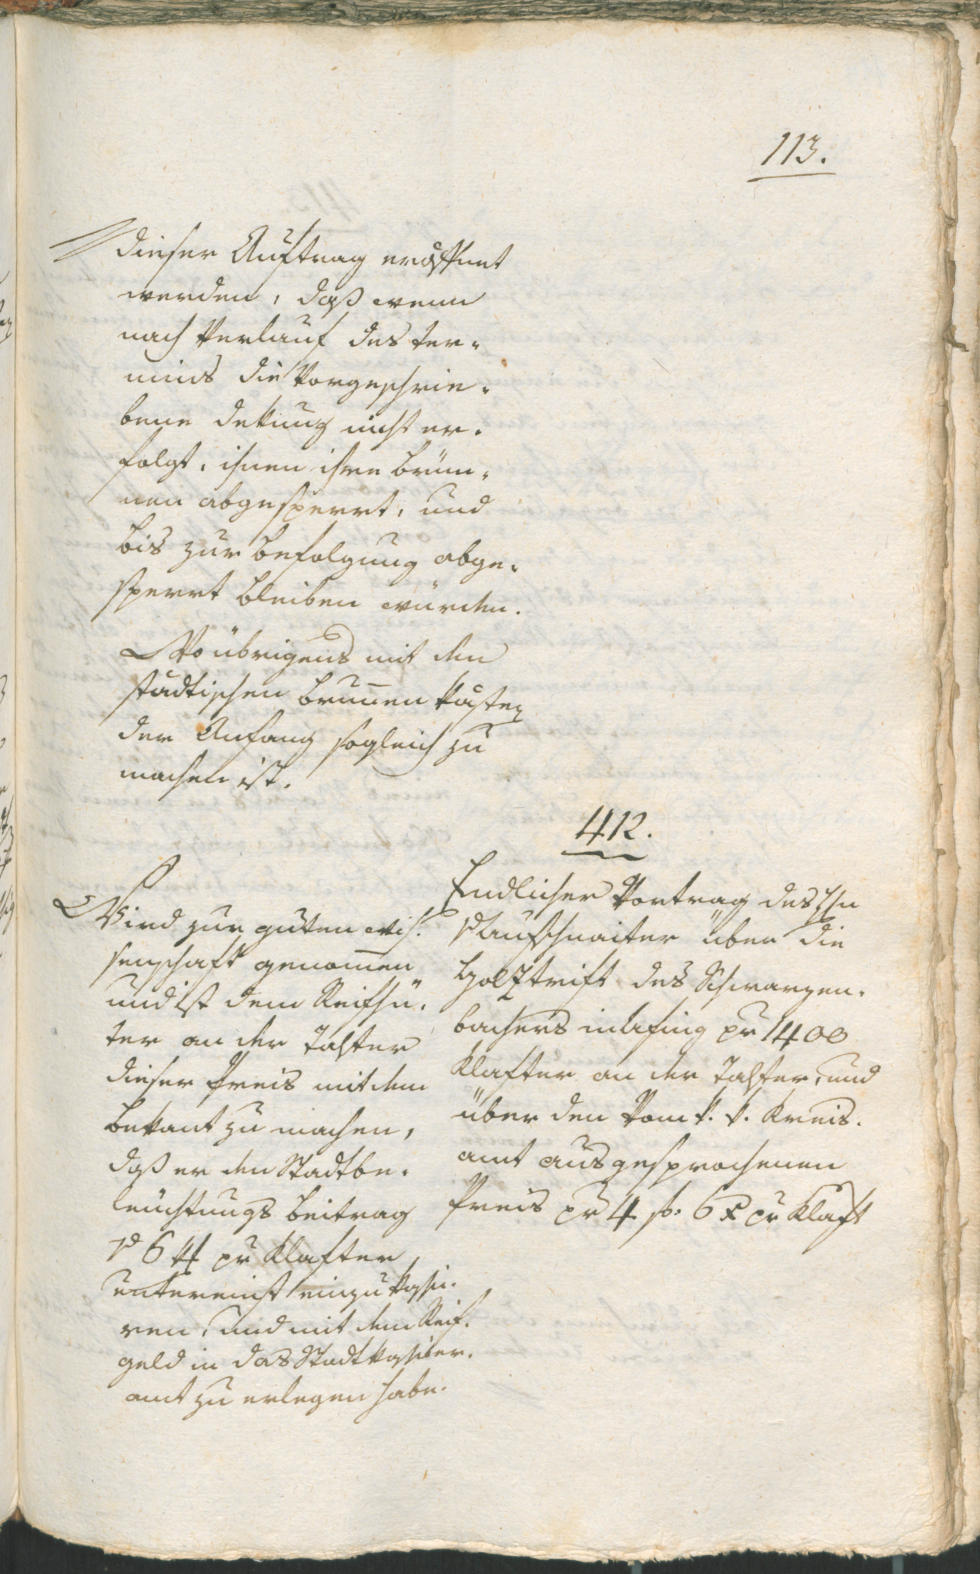 113.
dieser Auftrag eröffnet
werden, daß wenn
nach Verlauf des Ter-
mins die Vorgeschrie-
bene Dekung nicht er-
folgt, ihnen ihre Brün-
nen abgesperrt, und
bis zur Befolgung abge-
sperrt bleiben würden.
Wo übrigens mit den
städtischen Brunnen kästen
der Anfang sogleich zu
machen ist.
412.
Endlicher Vortrag des Hn
v Aufschnaiter über die
Holztrift des Schwarzen-
bachers in Afing pr 1400
Klafter an der Talfer, und
über den Vom k. k. Kreis-
amt ausgesprochenen
Preis pr 4 f. 6 x pr Klaft
Wird zur guten Wis-
senschaft genommen
und ist dem Reifhü-
ter an der Talfer
dieser Preis mit dem
bekant zu machen,
daß er den Stadtbe-
leuchtungs Beitrag
pr Klafter
untereinst einzukassi-
ren, und mit dem Reif-
geld in das Stadtkassier-
amt zu erlegen habe.